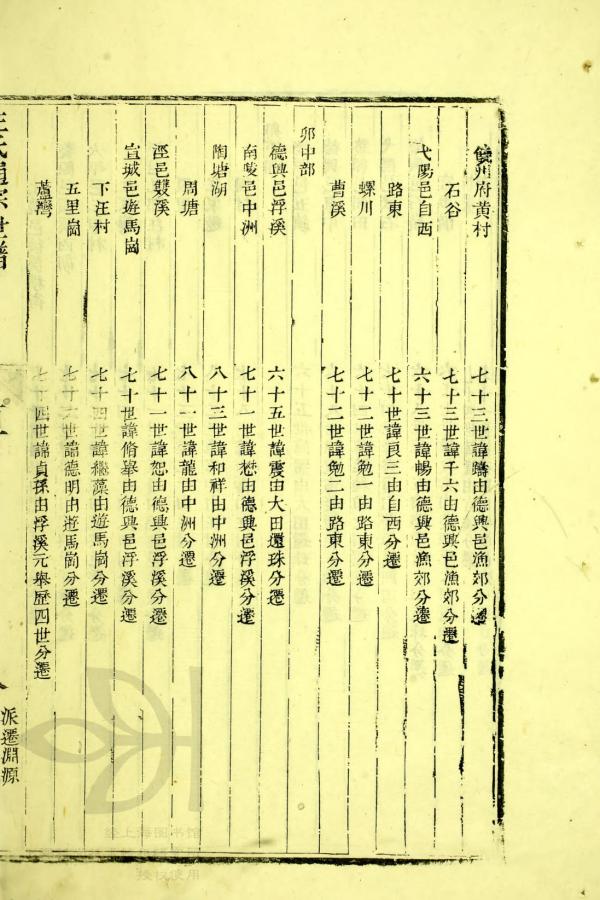 饒州府黄村 七十三世諱躋由德興邑漁郊分遷
石谷 七十三世諱千六由德興邑漁郊分遷
弋陽邑自西 六十三世諱暢由德興邑漁郊分遷
路東 七十世諱良三由自西分遷
螺川 七十二世諱勉一由路東分遷
曹溪 七十二世諱勉二由路東分遷
卯中部
德興邑浮溪 六十五世諱震由大田還珠分遷
南陵邑中洲 七十一世諱懋由德興邑浮溪分遷
陶塘湖 八十三世諱和祥由中洲分遷
周塘 八十一世諱龍由中洲分遷
涇邑雙溪 七十一世諱恕由德興邑浮溪分遷
宣城邑遊馬崗 七十世諱脩舉由德興邑浮溪分遷
下汪村 七十四世諱繼藻由遊馬崗分遷
五里崗 世諱德明由遊馬崗分遷
蘆灣 七十四世諱貞孫由浮溪元舉歷四世分遷
汪氏通宗世譜
派遷淵源
經上海图书馆
授权使用